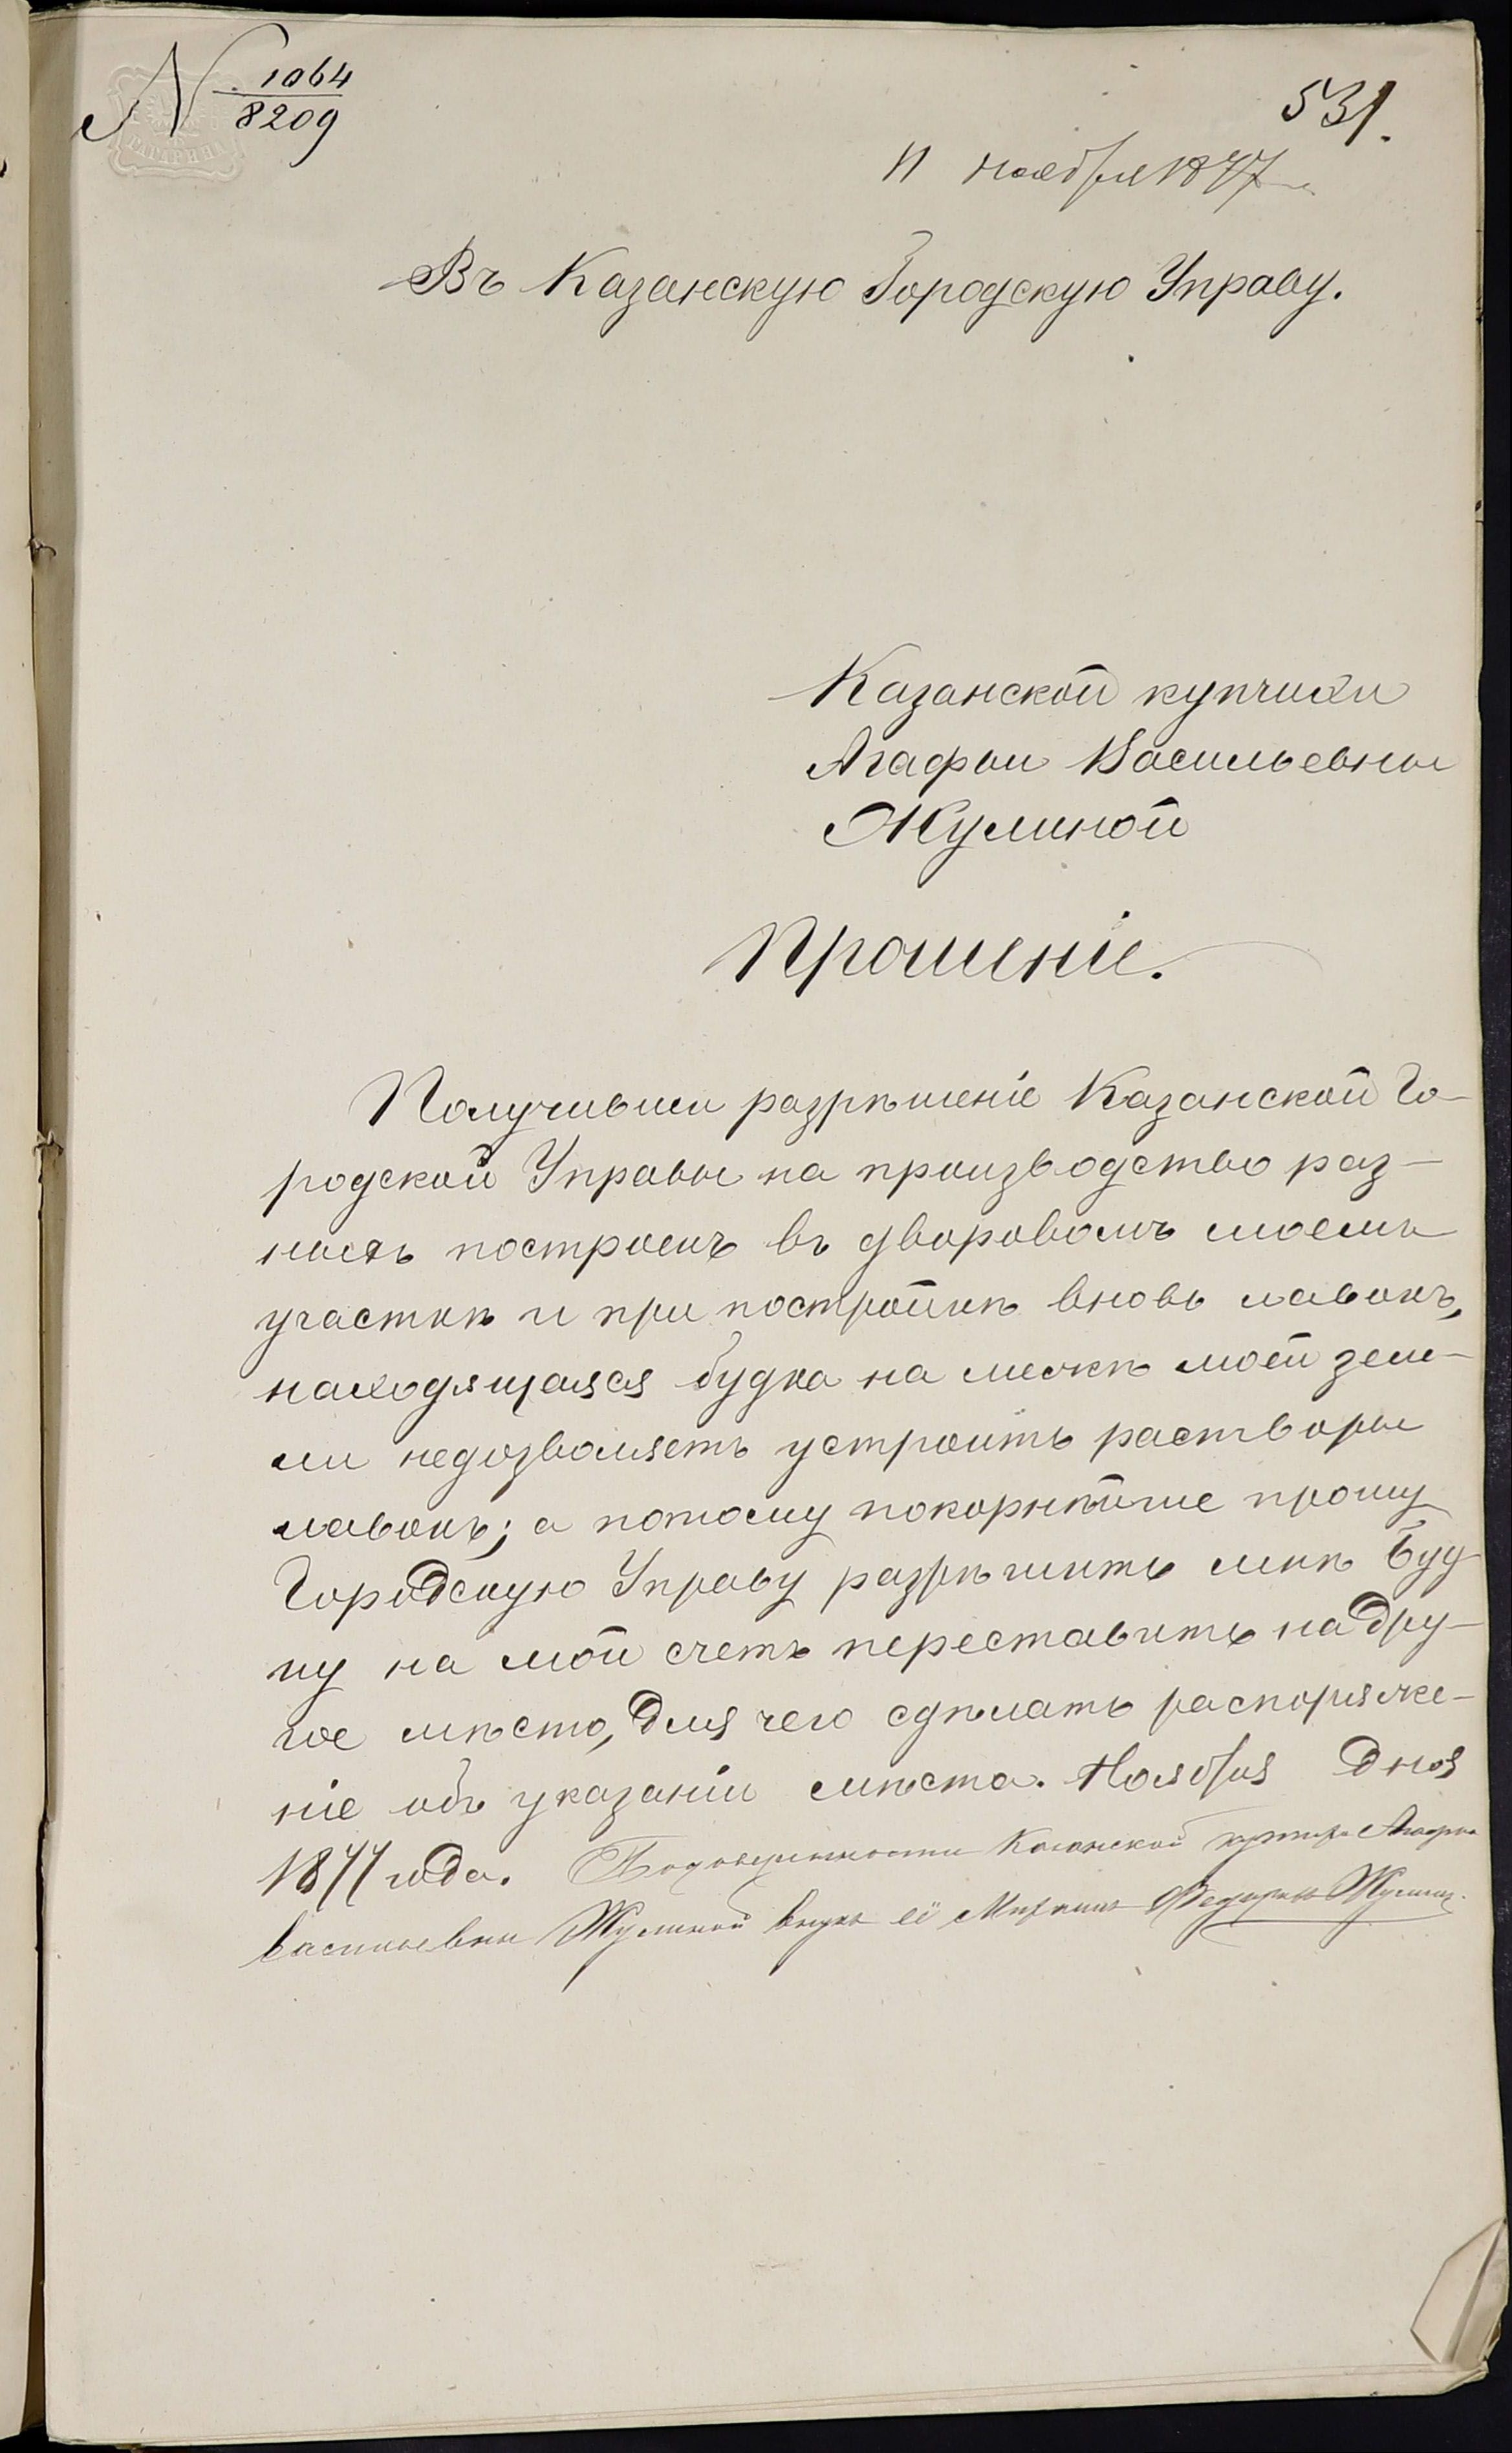 N 1064
8209
ГАГАРИНА
531.
11 ноября 1877 г.
Въ Казанскую Городскую Управу.
Казанской купчихи
Агафьи Васильевны
Жулиной
Прошеніе.
Получивши разрѣшеніе Казанской Го-
родской Управы на производство раз-
ныхъ построекъ въ дворовомъ моемъ
участкѣ и при постройкѣ вновь лавокъ,
находящаяся будка на межѣ моей зем-
ли недозволяетъ устроить растворы
лавокъ; а потому покорнѣйше прошу
Городскую Управу разрѣшить мнѣ буд-
ку на мой счетъ переставить на дру-
гое мѣсто, для чего сдѣлать распоряже-
ніе объ указаніи мѣста. Ноября дня
1877 года. По доверенности Казанской Агафьи
васильевны Жулиной внукъ её Федоровъ Жулинъ.